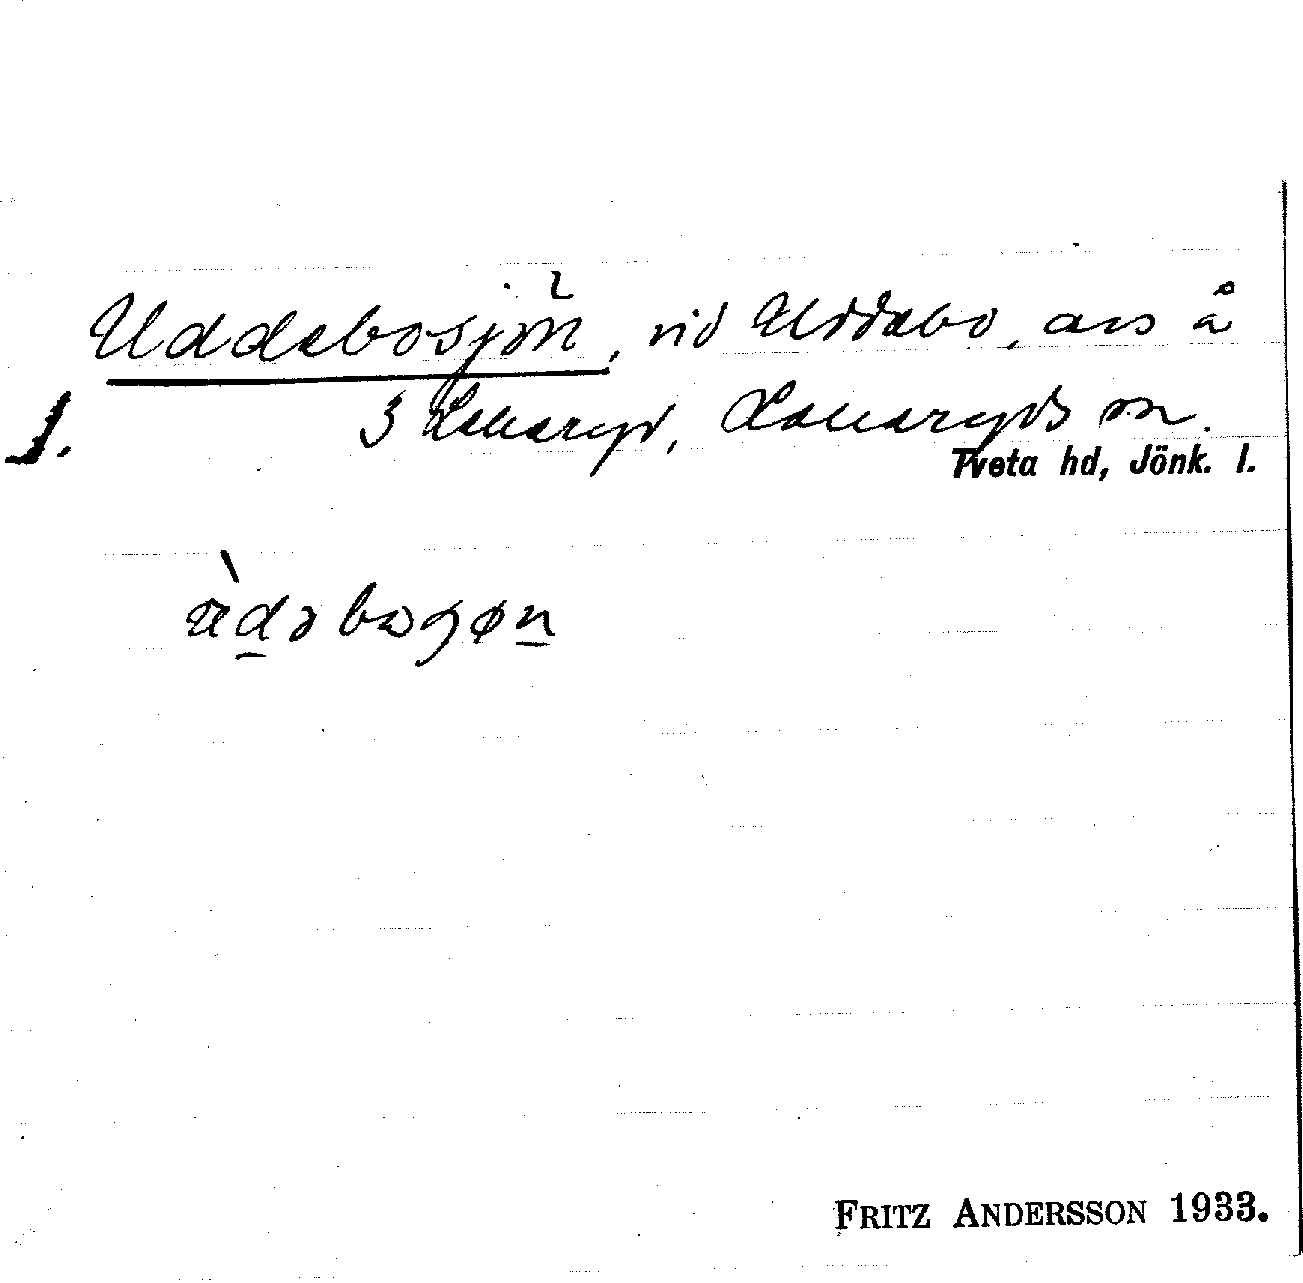 Uddebosjön, vid Uddebo, avs å
1. 3 Lekeryd, Lekeryds sn.
Tveta hd, Jönk. l.
Fritz Andersson 1933.